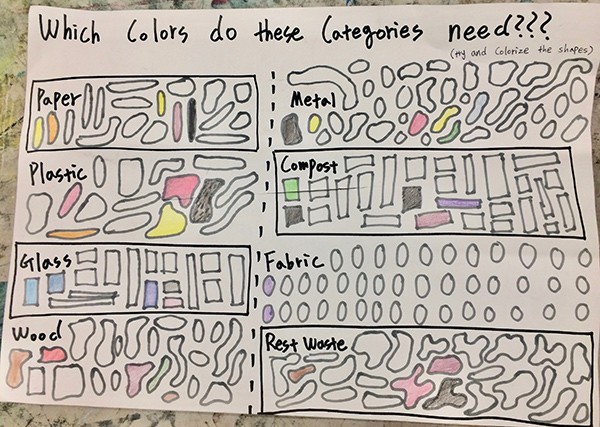 Which Colors do these Categories need???
(try and Colorize the shapes)
Paper
Metal
Plastic
Compost
Glass
Fabric
Wood
Rest Waste